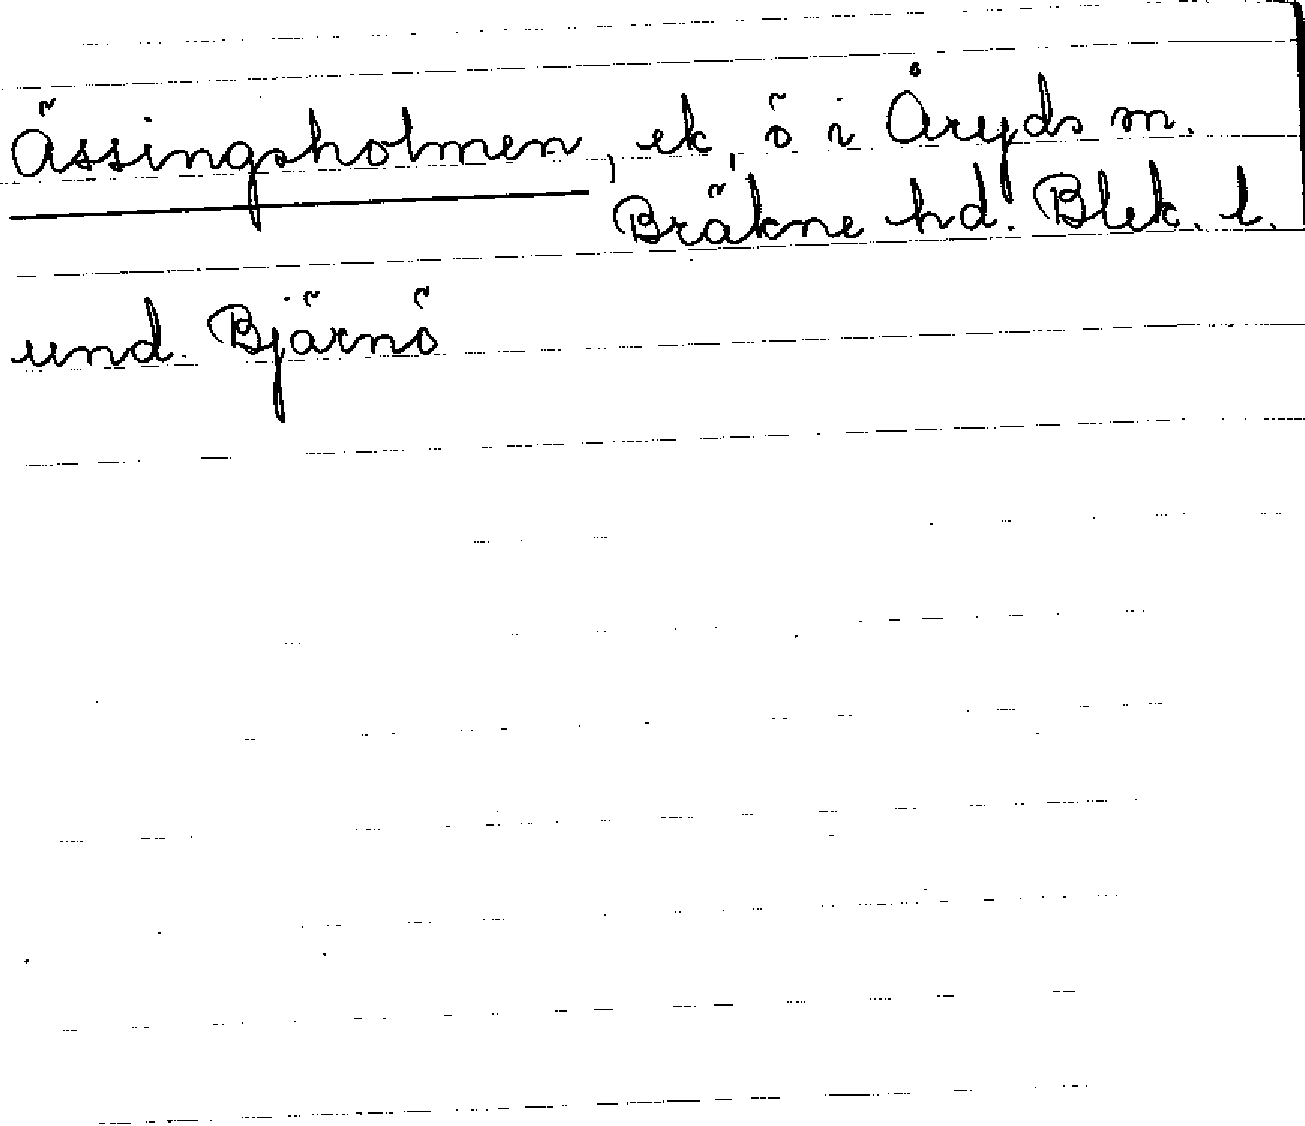 Ässingsholmen, ek, ö i Åryds m.
Bräkne hd. Blek. l.
und. Bjärnö